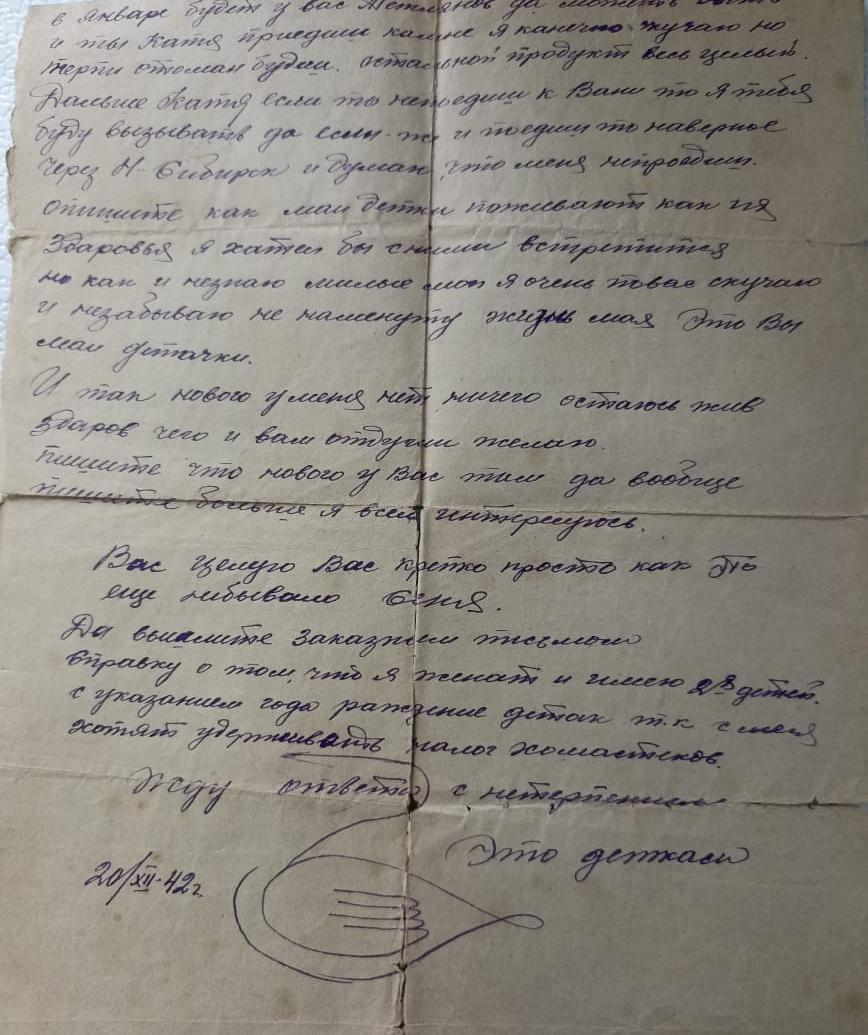 в январе будет у вас да может
и ты Катя приедиш камне я канечно жучаю но
терпи отоман будеш. остальной продукт весь целый.
Дальше Катя если то непоедиш к Вани то я тебя
буду вызывать да если же и поедиш то наверное
через Н-Сибирск и думаю что меня непроедиш.
опишите как маи детки поживают как ия
здаровья я хател бы сними встретится
но как и незнаю милые мои я очень повас скучаю
и незабываю не наменуту жизнь мая это Вы
маи деточки.
И так нового уменя нет ничего остаюсь жив
здаров чего и вам отдуши желаю.
пишите что нового у Вас там да вообще
пишите больше я всем интересуюсь.
Вас целую Вас крепко просто как то
еще небывало Сеня.
Да вышлите заказным письмом
справку о том, что я женат и имею 2х детей.
с указанием года раждение деток т.к сменя
хотят удерживать налог холостяков.
Жду ответа с нетерпением
Это деткам
20/XII-42г.